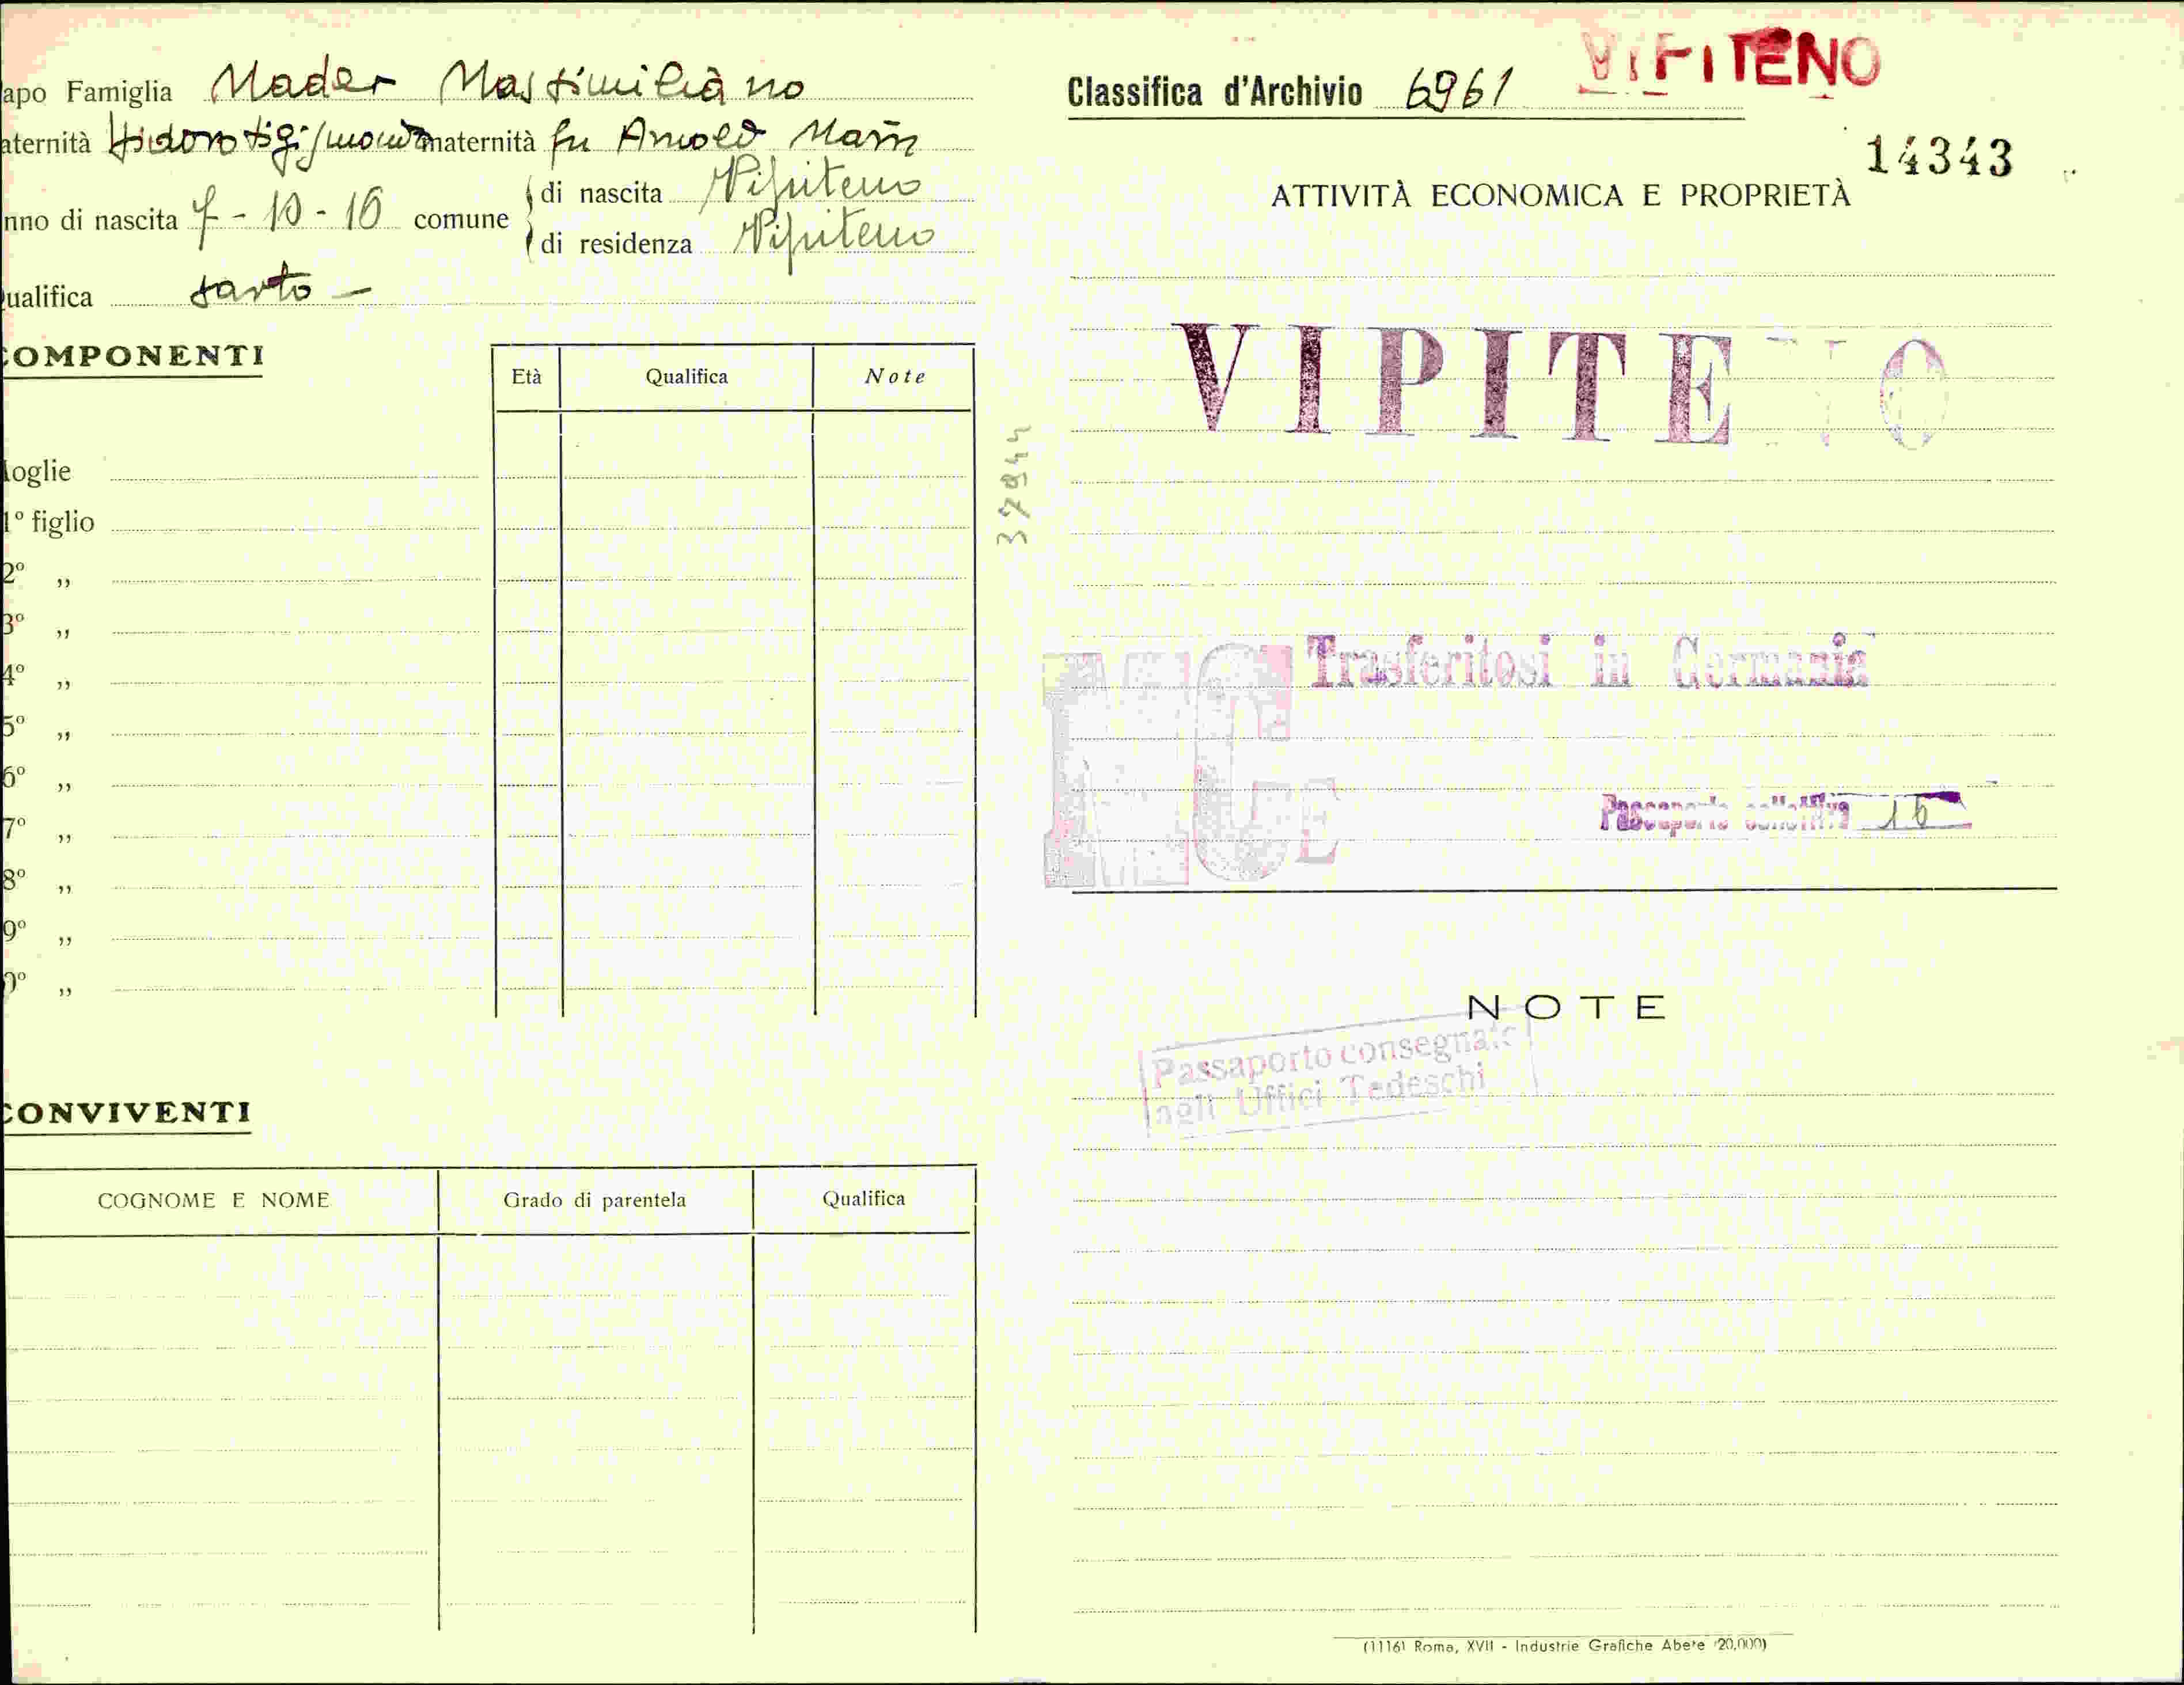 apo Famiglia Mader Massimiliano
aternità Isidoro Sigismondo maternità fu Arnold Maria
nno di nascita 7-10-16 comune
di nascita Vipiteno
di residenza Vipiteno
ualifica sarto -
COMPONENTI
Età Qualifica Note
oglie
1° figlio
2° ,,
3° ,,
4° ,,
5° ,,
6° ,,
7° ,,
8° ,,
9° ,,
0° ,,
CONVIVENTI
COGNOME E NOME Grado di parentela Qualifica
37944
Classifica d'Archivio 6961 VIPITENO
14343
ATTIVITÀ ECONOMICA E PROPRIETÀ
VIPITENO
Trasferitosi in Germania
Passaporto collettivo 15
NOTE
Passaporto consegnato
agli Uffici Tedeschi
(1116) Roma, XVII - Industrie Grafiche Abete (20.000)